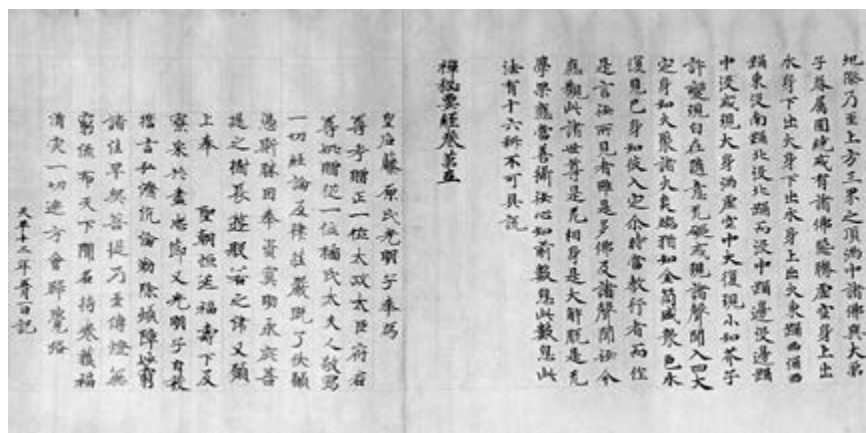 地際乃至上方三界之頂滿中諸佛與大弟
子眷屬圍繞或有諸佛飛騰虛空身上出
水身下出火身下出水身上出火東踊西沒西
踊東沒南踊北沒北踊南沒中踊邊沒邊踊
中沒或現大身滿虛空中大復現小如芥子
許變現自在隨意无礙或現諸聲聞入四大
定身如火聚諸火炎端猶如金筒盛眾色水
復見己身如彼入定尒時當教行者而作
是言汝所見者雖是多佛及諸聲聞汝今
應觀此諸世尊是无相身是大解脫是无
學果應當善攝汝心如前數息此數息此
法有十六科不可具說
禪秘要經卷第五
皇后藤原氏光明子奉為
尊考贈正一位太政太臣府君
尊妣贈從一位橘氏太夫人敬寫
一切經論及律莊嚴既了伏願
憑斯勝因奉資冥助永庇菩
提之樹長遊般若之津又願
上奉 聖朝恒延福壽下及
寮采共盡忠節又光明子自發
誓言弘濟沉淪勤除煩障妙窮
諸法早契菩提乃至傳燈無
窮流布天下聞名持卷獲福
消灾一切迷方會歸覺路
天平十二年五月一日記